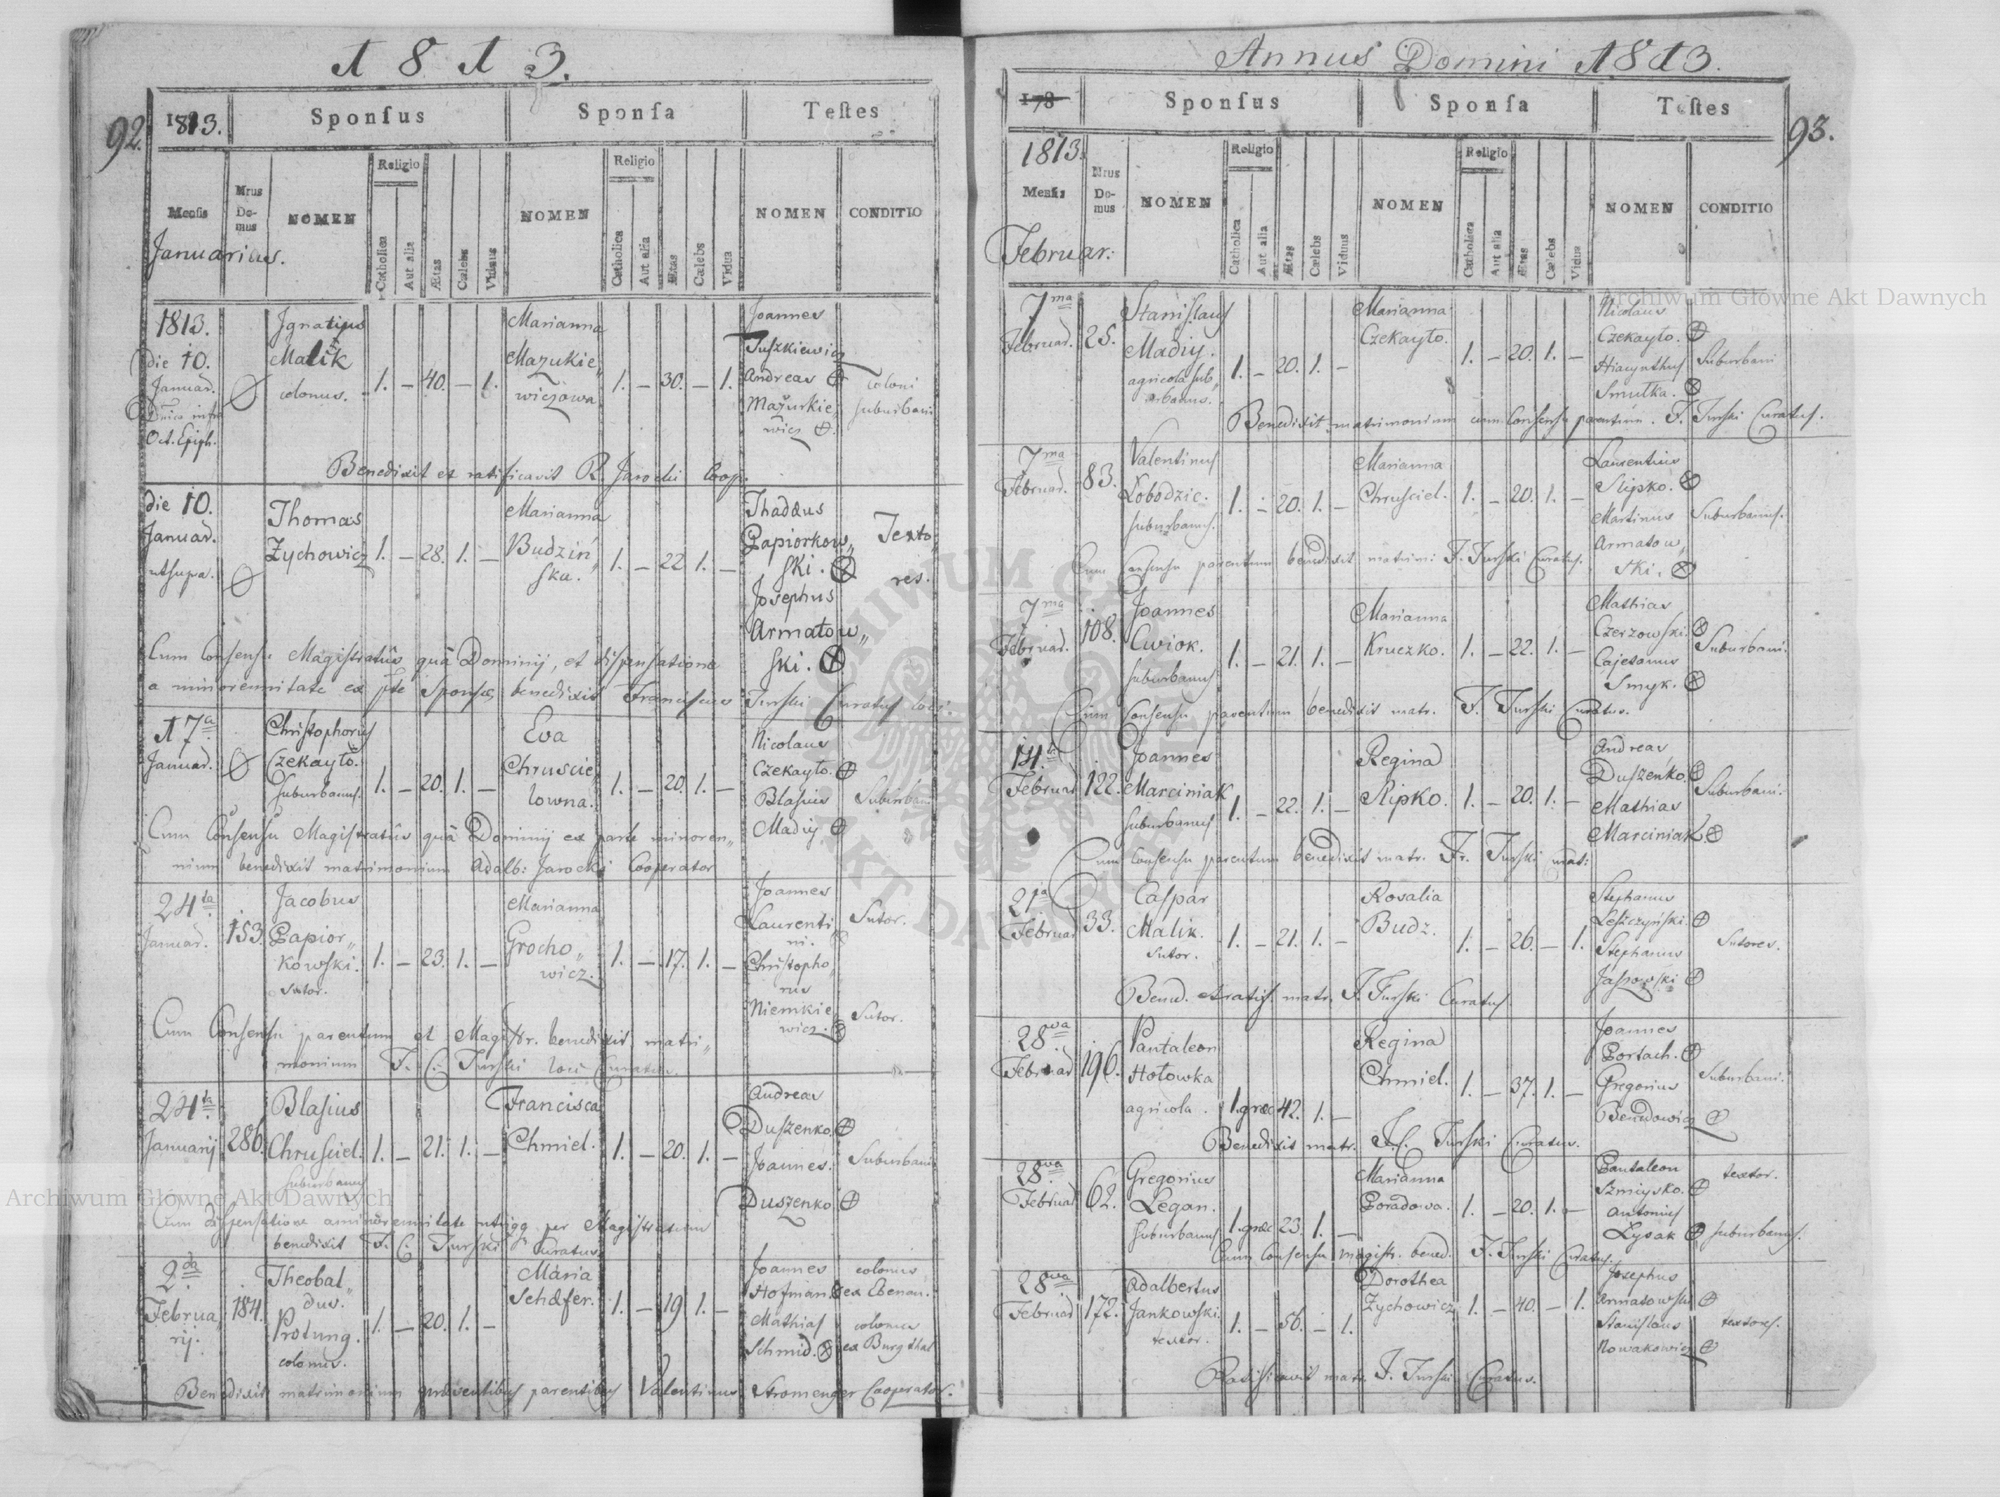 1813.
92.
1813.
Sponſus
Sponſa
Teſtes
Menſis
Nrus Do- mus
NOMEN
Religio
Catholica
Aut alia
Ætas
Cælebs
Viduus
NOMEN
Religio
Catholica
Aut alia
Ætas
Cælebs
Vidua
NOMEN
CONDITIO
Januarius.
1813.
die 10.
Januar.
Oct. Epiph.
Ignatius
Malik
colonus.
1. – 40. – 1.
Marianna
Mazukie„
wiczowa
1. – 30. – 1.
Joannes
Juszkiewicz
Andreas
Mazurkie„
wicz
coloni
suburbani
Benedixit et ratificavit R. Jarocki Coop.
die 10.
Januar.
utsupa.
Thomas
Zychowicz
1. – 28. 1. –
Marianna
Budziń„
ska.
1. – 22. 1. –
Thadæus
Papiorkow„
ski.
Josephus
Armatow„
ski.
Texto„
res.
Cum Consensu Magistratûs quà Dominij, et dispensatione
a minorennitate ex pte Sponsæ, benedixit Franciscus Turski Curatus loci.
17a
Januar.
Christophorus
Czekayło.
suburbanus.
1. – 20. 1. –
Eva
Chruscie„
lowna.
1. – 20. 1. –
Nicolaus
Czekayło.
Blasius
Madiy
Suburbani
Cum Consensu Magistratûs quà Dominij ex parte minoren„
nium benedixit matrimonium Adalb: Jarocki Cooperator
24ta
Januar.
153.
Jacobus
Papior„
kowski.
sutor.
1. – 23. 1. –
Marianna
Grocho„
wicz.
1. – 17. 1. –
Joannes
Laurenti
ni.
Christopho„
rus
Niemkie
wicz.
Sutor.
Sutor.
Cum Consensu parentum et Magistr. benedixit matri„
monium F. C. Turski loci Curatus.
24ta
Januarij
286.
Blasius
Chrusciel.
suburbanus
1. – 21. 1. –
Francisca
Chmiel.
1. – 20. 1. –
Andreas
Duszenko.
Joannes.
Duszenko
Suburbani
Cum dispensatione a minorennitate per Magistratum
benedixit F. C. Turski Curatus
2da
Februa„
rij.
184.
Theobal„
dus.
Protung.
colonus.
1. – 20. 1. –
Maria
Schæfer.
1. – 19 1. –
Joannes
Hofman
Mathias
Schmid.
colonus
ex Ebenau.
colonus
ex Burgthal
Benedixit matrimonium præsentibus parentibus Valentinus Stromenger Cooperator.
Annus Domini 1813.
93.
178
Sponſus
Sponſa
Teſtes
1813.
Menſis
Nrus Do- mus
NOMEN
Religio
Catholica
Aut alia
Ætas
Cælebs
Viduus
NOMEN
Religio
Catholica
Aut alia
Ætas
Cælebs
Vidua
NOMEN
CONDITIO
Februar:
7ma
Februar.
25.
Stanislaus
Madiy.
agricola sub„
urbanus.
1. – 20. 1. –
Marianna
Czekayło.
1. – 20. 1. –
Nicolaus
Czekayło.
Hiacynthus
Smutka.
Suburbani
Benedixit matrimonium cum Consensu parentum. F. Turski Curatus.
7ma
Februar.
83.
Valentinus
Łobodzic.
suburbanus.
1. – 20. 1. –
Marianna
Chrusciel.
1. – 20. 1. –
Laurentius
Slipko.
Martinus
Armatow„
ski.
Suburbanus.
Cum Consensu parentum benedixit matrim: F. Turski Curatus.
7ma
Februar.
108.
Joannes
Cwiok.
suburbanus
1. – 21. 1. –
Marianna
Kruczko.
1. – 22. 1. –
Mathias
Czerzowski.
Cajetanus
Smyk.
Suburbani.
Cum Consensu parentum benedixit matr. F. Turski Curatus.
14ta
Februar
122.
Joannes
Marciniak
suburbanus
1. – 22. 1. –
Regina
Slipko.
1. – 20. 1. –
Andreas
Duszenko.
Mathias
Marciniak
Suburbani.
Cum Consensu parentum benedixit matr. Fr. Turski
21a
Februar
33.
Caspar
Malik.
sutor.
1. – 21. 1. –
Rosalia
Budz.
1. – 26. – 1.
Stephanus
Leszczyński.
Stephanus
Jassowski
Sutores.
Bened. matr. F. Turski Curatus.
28va
Februar
196.
Pantaleon
Hołowka
agricola.
1. græc 42. 1. –
Regina
Chmiel.
1. – 37. 1. –
Joannes
Portach.
Gregorius
Benedowicz
Suburbani.
Benedixit matr. F. C. Turski Curatus.
28va
Februar
62.
Gregorius
Legan.
suburbanus
1. græc 23. 1. –
Marianna
Poradowa.
1. – 20. 1. –
Pantaleon
Szmiysko.
Antonius
Lysak
textor.
suburbanus.
Cum Consensu magistr. bened. F. Turski Curatus.
28va
Februar
172.
Adalbertus
Jankowski.
textor.
1. – 56. – 1.
Dorothea
Zychowicz
1. – 40. – 1.
Josephus
Armatowski
Stanislaus
Nowakowicz
textores.
Ratificavit matr. F. Turski Curatus.
Archiwum Główne Akt Dawnych
Archiwum Główne Akt Dawnych
ARCHIWUM GŁÓWNE AKT DAWNYCH